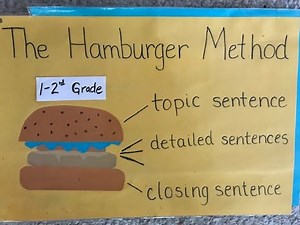 The Hamburger Method
1-2nd Grade
topic sentence
detailed sentences
closing sentence